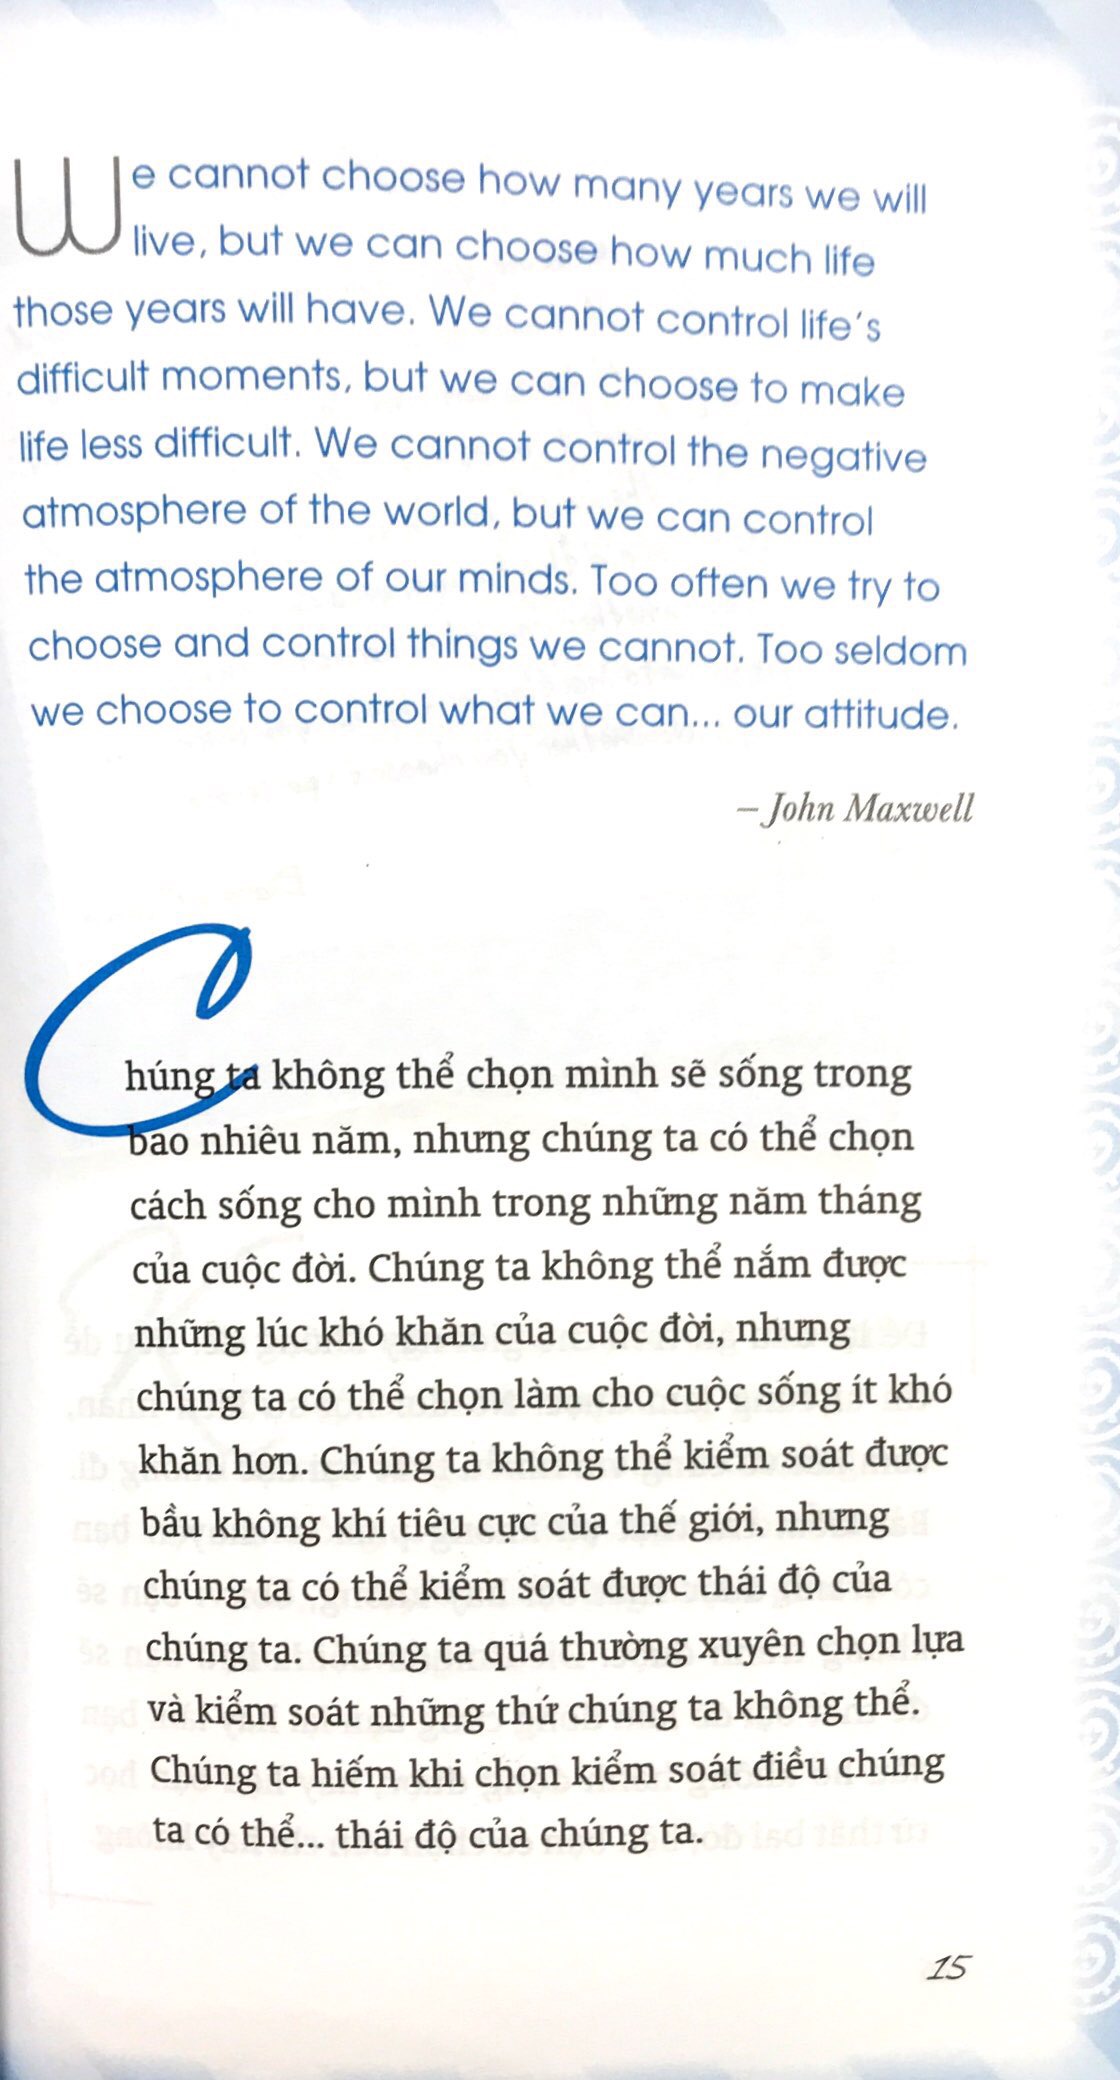 We cannot choose how many years we will
live, but we can choose how much life
those years will have. We cannot control life's
difficult moments, but we can choose to make
life less difficult. We cannot control the negative
atmosphere of the world, but we can control
the atmosphere of our minds. Too often we try to
choose and control things we cannot. Too seldom
we choose to control what we can... our attitude.
– John Maxwell
Chúng ta không thể chọn mình sẽ sống trong
bao nhiêu năm, nhưng chúng ta có thể chọn
cách sống cho mình trong những năm tháng
của cuộc đời. Chúng ta không thể nắm được
những lúc khó khăn của cuộc đời, nhưng
chúng ta có thể chọn làm cho cuộc sống ít khó
khăn hơn. Chúng ta không thể kiểm soát được
bầu không khí tiêu cực của thế giới, nhưng
chúng ta có thể kiểm soát được thái độ của
chúng ta. Chúng ta quá thường xuyên chọn lựa
và kiểm soát những thứ chúng ta không thể.
Chúng ta hiếm khi chọn kiểm soát điều chúng
ta có thể... thái độ của chúng ta.
15